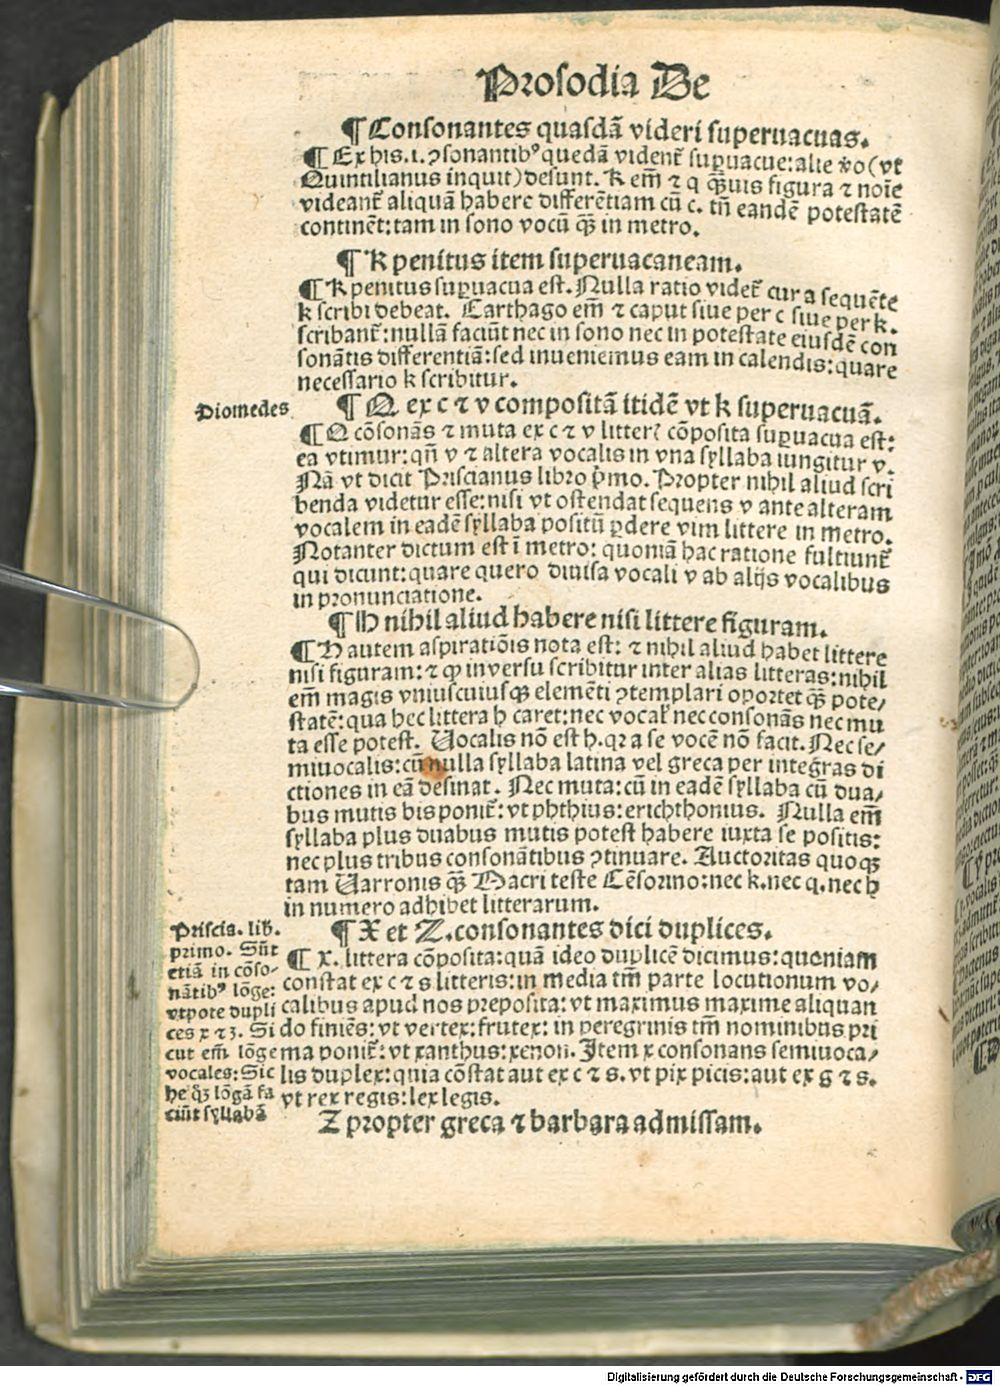 Prosodia De
¶ Consonantes quasdã videri superuacuas.
¶ Ex his. i. ꝯsonantibꝰ quedã vident᷑ suꝑuacue: alie ꝟo (vt
Quintilianus inquit) desunt. K em̃ ⁊ q q̃uis figura ⁊ noĩe
videant᷑ aliquã habere differẽtiam cũ c. tñ eandẽ potestatẽ
continẽt: tam in sono vocũ q̃ in metro.
¶ K penitus item superuacaneam.
¶ K penitus suꝑuacua est. Nulla ratio videt᷑ cur a sequẽte
k scribi debeat. Carthago em̃ ⁊ caput siue per c siue per k.
scribant᷑: nullã faciũt nec in sono nec in potestate eiusdẽ con
sonãtis differentiã: sed inueniemus eam in calendis: quare
necessario k scribitur.
Diomedes
¶ Q ex c ⁊ v compositã itidẽ vt k superuacuã.
¶ Q cõsonãs ⁊ muta ex c ⁊ v litterꝭ cõposita suꝑuacua est:
ea vtimur: qñ v ⁊ altera vocalis in vna syllaba iungitur v.
Nã vt dicit Priscianus libro p̃mo. Propter nihil aliud scri
benda videtur esse: nisi vt ostendat sequens v ante alteram
vocalem in eadẽ syllaba positũ ꝑdere vim littere in metro.
Notanter dictum est ĩ metro: quoniã hac ratione fultiunt᷑
qui dicunt: quare quero diuisa vocali v ab alijs vocalibus
in pronunciatione.
¶ H nihil aliud habere nisi littere figuram.
¶ H autem aspiratiõis nota est: ⁊ nihil aliud habet littere
nisi figuram: ⁊ ꝙ in versu scribitur inter alias litteras: nihil
em̃ magis vniuscuiusqꝫ elemẽti ꝯtemplari oportet q̃ pote/
statẽ: qua hec littera h caret: nec vocal᷑ nec consonãs nec mu
ta esse potest. Uocalis nõ est h. qꝛ a se vocẽ nõ facit. Nec se/
miuocalis: cũ nulla syllaba latina vel greca per integ̃ras di
ctiones in eã desinat. Nec muta: cũ in eadẽ syllaba cũ dua/
bus mutis bis ponit᷑: vt phthius: erichthonius. Nulla em̃
syllaba plus duabus mutis potest habere iuxta se positis:
nec plus tribus consonãtibus ꝯtinuare. Auctoritas quoqꝫ
tam Uarronis q̃ Macri teste Cẽsorino: nec k. nec q. nec h
in numero adhibet litterarum.
¶ X et Z. consonantes dici duplices.
Priscia. lib.
primo. Sũt
etiã in cõso-
nãtibꝰ lõge:
vtpote dupli
ces x ⁊ z. Si
cut em̃ lõge
vocales: Sic
he qꝫ lõgã fa
ciũt syllabã
¶ X. littera cõposita: quã ideo duplicẽ dicimus: quoniam
constat ex c ⁊ s litteris: in media tm̃ parte locutionum vo/
calibus apud nos preposita: vt maximus maxime aliquan
do finiẽs: vt vertex: frutex: in peregrinis tm̃ nominibus pri
ma ponit᷑: vt xanthus: xenon. Item x consonans semiuoca/
lis duplex: quia cõstat aut ex c ⁊ s. vt pix picis: aut ex g ⁊ s.
vt rex regis: lex legis.
Z propter greca ⁊ barbara admissam.
Digitalisierung gefördert durch die Deutsche Forschungsgemeinschaft - DFG